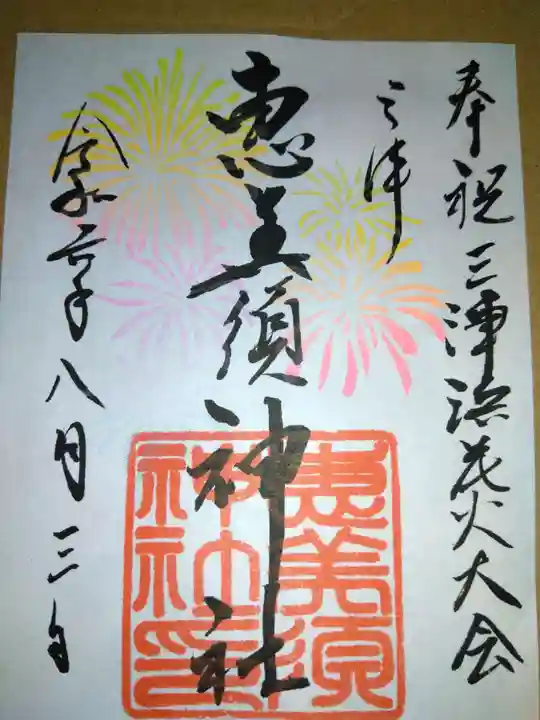 奉祝三津浜花火大会
三津
恵美須神社
令和六年八月三日
恵美須
神社印